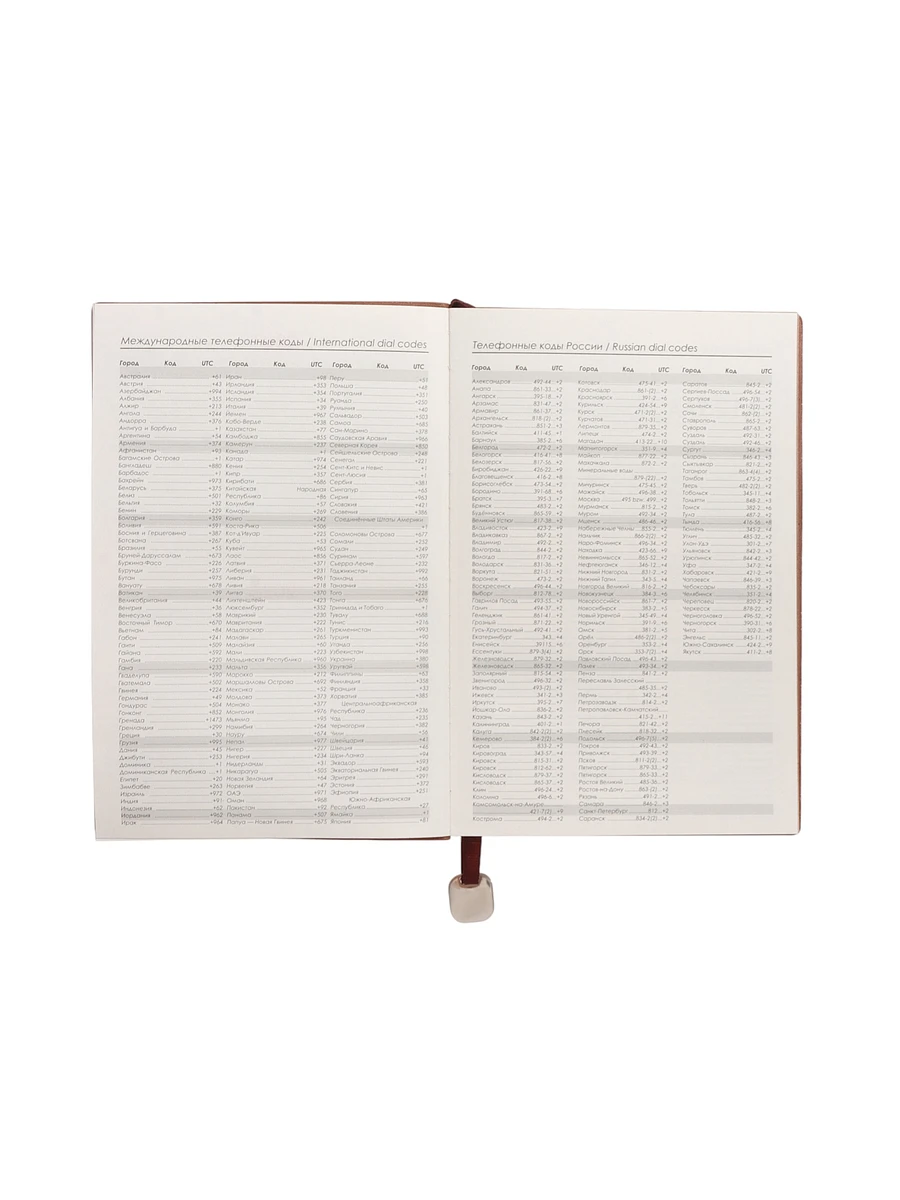 Международные телефонные коды / International dial codes
Город Код UTC
Австралия +61
Австрия +43
Азербайджан +994
Албания +355
Алжир +213
Ангола +244
Андорра +376
Антигуа и Барбуда +1
Аргентина +54
Армения +374
Афганистан +93
Багамские Острова +1
Бангладеш +880
Барбадос +1
Бахрейн +973
Беларусь +375
Белиз +501
Бельгия +32
Бенин +229
Болгария +359
Боливия +591
Босния и Герцеговина +387
Ботсвана +267
Бразилия +55
Бруней-Даруссалам +673
Буркина-Фасо +226
Бурунди +257
Бутан +975
Вануату +678
Ватикан +39
Великобритания +44
Венгрия +36
Венесуэла +58
Восточный Тимор +670
Вьетнам +84
Габон +241
Гаити +509
Гайана +592
Гамбия +220
Гана +233
Гваделупа +590
Гватемала +502
Гвинея +224
Германия +49
Гондурас +504
Гонконг +852
Гренада +1473
Гренландия +299
Греция +30
Грузия +995
Дания +45
Джибути +253
Доминика +1
Доминиканская Республика +1
Египет +20
Зимбабве +263
Израиль +972
Индия +91
Индонезия +62
Иордания +962
Ирак +964
Город Код UTC
Иран +98
Ирландия +353
Исландия +354
Испания +34
Италия +39
Йемен +967
Кабо-Верде +238
Казахстан +77
Камбоджа +855
Камерун +237
Канада +1
Катар +974
Кения +254
Кирибати +686
Китайская Народная
Республика +86
Колумбия +57
Коморы +269
Конго +242
Коста-Рика +506
Кот-д'Ивуар +225
Куба +53
Кувейт +965
Лаос +856
Латвия +371
Либерия +231
Ливан +961
Ливия +218
Литва +370
Лихтенштейн +423
Люксембург +352
Маврикий +230
Мавритания +222
Мадагаскар +261
Малайзия +60
Мали +223
Мальдивская Республика +960
Мальта +356
Марокко +212
Маршалловы Острова +692
Мексика +52
Молдова +373
Монако +377
Монголия +976
Мьянма +95
Намибия +264
Науру +674
Непал +977
Нигер +227
Нигерия +234
Нидерланды +31
Никарагуа +505
Новая Зеландия +64
Норвегия +47
ОАЭ +971
Оман +968
Пакистан +92
Панама +507
Папуа — Новая Гвинея +675
Город Код UTC
Перу +51
Польша +48
Португалия +351
Руанда +250
Румыния +40
Сальвадор +503
Самоа +685
Сан-Марино +378
Саудовская Аравия +966
Северная Корея +850
Сейшельские Острова +248
Сенегал +221
Сент-Китс и Невис +1
Сент-Люсия +1
Сербия +381
Сингапур +65
Сирия +963
Словакия +421
Словения +386
Соединённые Штаты Америки
+1
Соломоновы Острова +677
Сомали +252
Судан +249
Суринам +597
Сьерра-Леоне +232
Таджикистан +992
Таиланд +66
Танзания +255
Того +228
Тонга +676
Тринидад и Тобаго +1
Тувалу +688
Тунис +216
Туркменистан +993
Турция +90
Уганда +256
Узбекистан +998
Украина +380
Уругвай +598
Филиппины +63
Финляндия +358
Франция +33
Хорватия +385
Центральноафриканская
Республика +236
Чад +235
Черногория +382
Чили +56
Швейцария +41
Швеция +46
Шри-Ланка +94
Эквадор +593
Экваториальная Гвинея +240
Эритрея +291
Эстония +372
Эфиопия +251
Южно-Африканская
Республика +27
Ямайка +1
Япония +81
Телефонные коды России / Russian dial codes
Город Код UTC
Александров 492-44 +2
Анапа 861-33 +2
Ангарск 395-18 +7
Арзамас 831-47 +2
Армавир 861-37 +2
Архангельск 818 (2) +2
Астрахань 851-2 +3
Балтийск 411-45 +1
Барнаул 385-2 +6
Белгород 472-2 +2
Белогорск 416-47 +8
Белозерск 817-56 +2
Биробиджан 426-22 +9
Благовещенск 416-2 +8
Борисоглебск 473-54 +2
Бородино 391-68 +6
Братск 395-3 +7
Брянск 483-2 +2
Будённовск 865-59 +2
Великий Устюг 817-38 +2
Владивосток 423-2 +9
Владикавказ 867-2 +2
Владимир 492-2 +2
Волгоград 844-2 +2
Вологда 817-2 +2
Володарск 831-36 +2
Воркута 821-51 +2
Воронеж 473-2 +2
Воскресенск 496-44 +2
Выборг 812-78 +2
Гаврилов Посад 493-55 +2
Галич 494-37 +2
Геленджик 861-41 +2
Грозный 871-22 +2
Гусь-Хрустальный 492-41 +2
Екатеринбург 343 +4
Енисейск 39115 +6
Ессентуки 879-3(4) +2
Железноводск 879-32 +2
Железногорск 863-32 +2
Заполярный 815-54 +2
Звенигород 496-32 +2
Иваново 493-(2) +2
Ижевск 341-2 +3
Иркутск 395-2 +7
Йошкар-Ола 836-2 +2
Казань 843-2 +2
Калининград 401-2 +1
Калуга 842-2(2) +2
Кемерово 384-2(2) +6
Киров 833-2 +2
Кировград 343-57 +4
Кировск 815-31 +2
Кировск 812-62 +2
Кисловодск 879-37 +2
Кисловодск 865-37 +2
Клин 496-24 +2
Коломна 496-6 +2
Комсомольск-на-Амуре
421-7(2) +9
Кострома 494-2 +2
Город Код UTC
Котовск 475-41 +2
Краснодар 861-(2) +2
Красноярск 391-2 +6
Курильск 424-54 +9
Курск 471-2(2) +2
Курчатов 471-31 +2
Лермонтов 879-35 +2
Липецк 474-2 +2
Магадан 413 22 +10
Магнитогорск 351-9 +4
Майкоп 877-22 +2
Махачкала 872-2 +2
Минеральные воды
879-(22) +2
Мичуринск 475-45 +2
Можайск 496-38 +2
Москва 495 (или 499) +2
Мурманск 815-2 +2
Муром 492-34 +2
Мценск 486-46 +2
Набережные Челны 855-2 +2
Нальчик 866-2(2) +2
Наро-Фоминск 496-34 +2
Находка 423-66 +9
Невинномысск 865-52 +2
Нефтеюганск 346-12 +4
Нижний Новгород 831-2 +2
Нижний Тагил 343-5 +4
Новгород Великий 816-2 +2
Новокузнецк 384-3 +6
Новороссийск 861-7 +2
Новосибирск 383-2 +5
Новый Уренгой 345-49 +4
Норильск 391-9 +6
Омск 381-2 +5
Орёл 486-2(2) +2
Оренбург 353-2 +4
Орск 353-7(2) +4
Павловский Посад 496-43 +2
Палех 493-34 +2
Пенза 841-2 +2
Переславль Залесский
485-35 +2
Пермь 342-2 +4
Петрозаводск 814-2 +2
Петропавловск-Камчатский
415-2 +11
Печора 821-42 +2
Плесецк 818-32 +2
Подольск 496-7(5) +2
Покров 492-43 +2
Приволжск 493-39 +2
Псков 811-2(2) +2
Пятигорск 879-33 +2
Пятигорск 865-33 +2
Ростов Великий 485-36 +2
Ростов-на-Дону 863 (2) +2
Рязань 491-2 +2
Самара 846-2 +3
Санкт-Петербург 812 +2
Саранск 834-2(2) +2
Город Код UTC
Саратов 845-2 +2
Сергиев-Посад 496-54 +2
Серпухов 496-7(3) +2
Смоленск 481-2(2) +2
Сочи 862 (2) +2
Ставрополь 865-2 +2
Суворов 487-63 +2
Суздаль 492-31 +2
Суздаль 492-46 +2
Сургут 346-2 +4
Сызрань 846-43 +3
Сыктывкар 821-2 +2
Таганрог 863-4(4) +2
Тамбов 475-2 +2
Тверь 482-2(2) +2
Тобольск 345-11 +4
Тольятти 848-2 +3
Томск 382-2 +6
Тула 487-2 +2
Тында 416-56 +8
Тюмень 345-2 +4
Углич 485-32 +2
Улан-Удэ 301-2 +7
Ульяновск 842-2 +3
Урюпинск 844-42 +2
Уфа 347-2 +4
Хабаровск 421-2 +9
Чапаевск 846-39 +3
Чебоксары 835-2 +2
Челябинск 351-2 +4
Череповец 820-2 +2
Черкесск 878-22 +2
Черноголовка 496-52 +2
Черногорск 390-31 +6
Чита 302-2 +8
Энгельс 845-11 +2
Южно-Сахалинск 424-2 +9
Якутск 411-2 +8